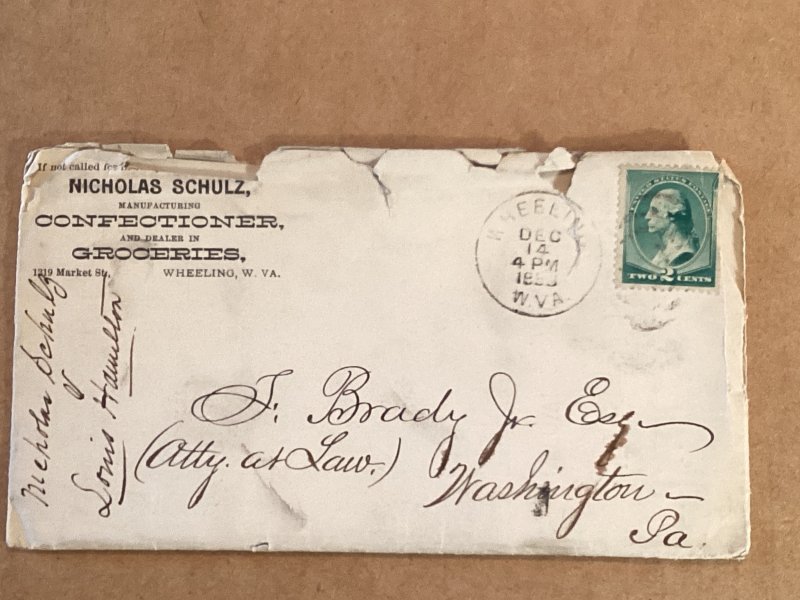 If not called for
NICHOLAS SCHULZ,
MANUFACTURING
CONFECTIONER,
AND DEALER IN
GROCERIES,
1219 Market St., WHEELING, W. VA.
WHEELING
DEC
14
4 PM
W.VA.
UNITED STATES POSTAGE
TWO 2 CENTS
Nicholas Schulz
v
Louis Hamilton
J. Brady Jr. Esq
(Atty. at Law.)
Washington
Pa.